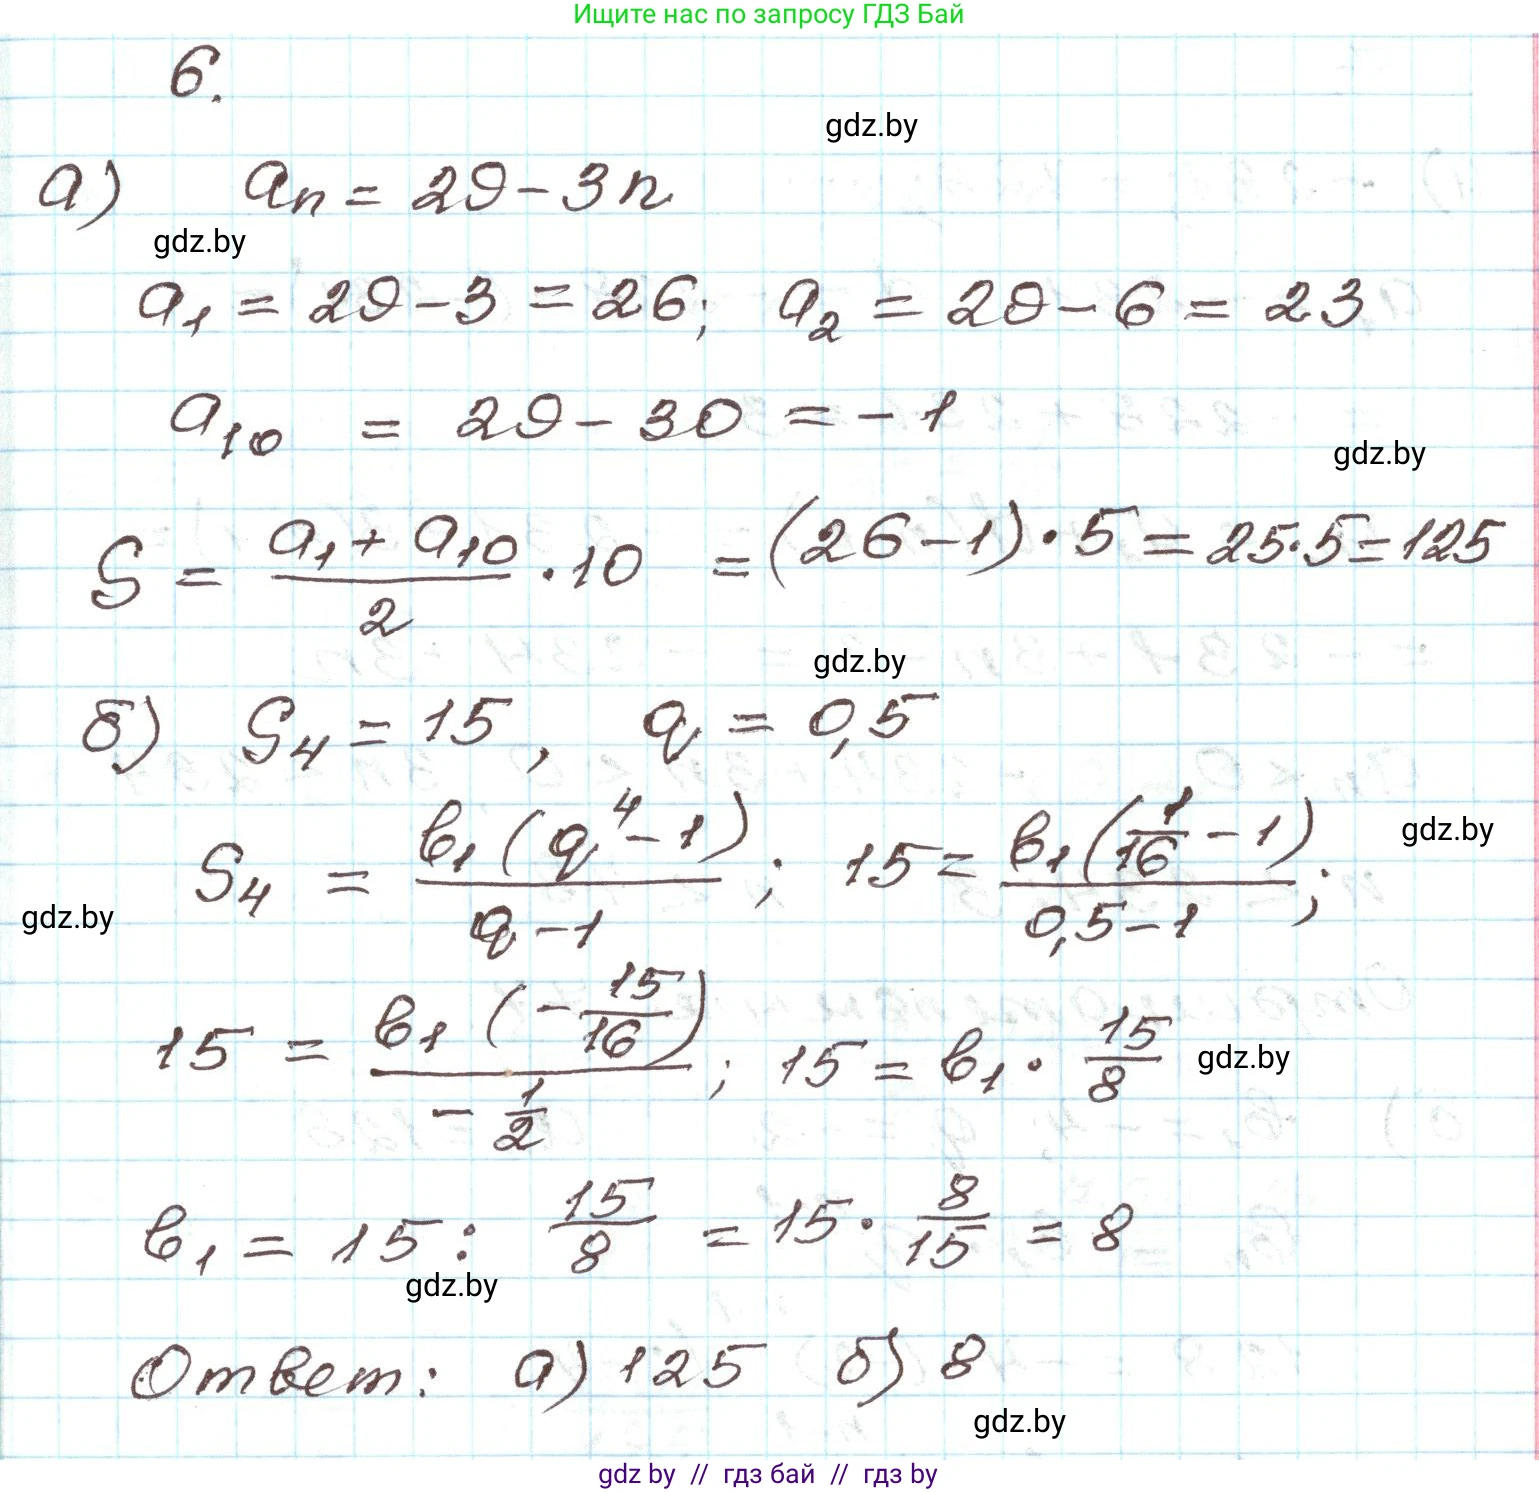 Ищите нас по запросу ГДЗ Бай
6.
gdz.by
а) aₙ = 29 - 3n
gdz.by
a₁ = 29 - 3 = 26; a₂ = 29 - 6 = 23
a₁₀ = 29 - 30 = -1
gdz.by
S = (a₁ + a₁₀)/2 · 10 = (26 - 1) · 5 = 25 · 5 = 125
gdz.by
б) S₄ = 15, q = 0,5
S₄ = b₁(q⁴ - 1)/(q - 1); 15 = b₁(1/16 - 1)/(0,5 - 1);
gdz.by
gdz.by
15 = b₁(-15/16)/(-1/2); 15 = b₁ · 15/8
gdz.by
b₁ = 15 : 15/8 = 15 · 8/15 = 8
gdz.by
Ответ: а) 125 б) 8
gdz.by
gdz by // гдз бай // гдз by